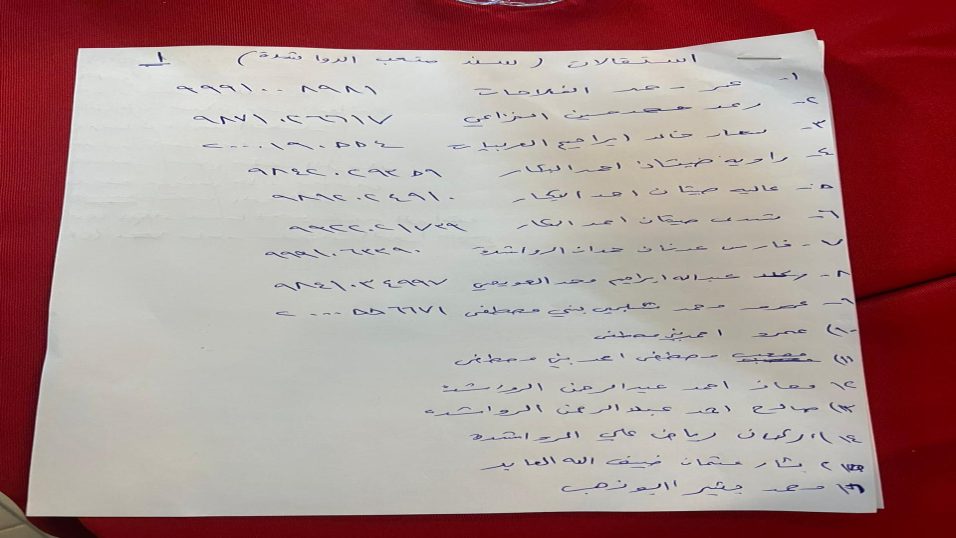 استقالات (سند متعب الرواشدة) ١
١- عمر حمد الفلاحات ٩٩٩١٠٠٨٩٨١
٢- رعد محمد حسين الخزاعي ٩٨٧١٠٢٦٦١٧
٣- خالد ابراهيم العربيات ٢٠٠٠١٩٠٥٥٤
٤- راويه ضيتان احمد البكار ٩٨٤٢٠٢٩٣٥٩
٥- عاليه ضيتان احمد البكار ٩٨٩٢٠٢٤٩١٠
٦- ضيتان احمد البكار ٩٩٢٢٠٢١٧٣٩
٧- فارس عدنان حمدان الرواشدة ٩٩٩١٠٦٣٣٩٠
٨- عبدالله ابراهيم محمد العويمي ٩٨٤١٠٣٤٩٩٧
٩- محمد بني مصطفى ٢٠٠٠٥٥٦٦٧١
١٠) عمرو احمد بني مصطفى
١١) مصعب مصطفى احمد بني مصطفى
١٢ معاذ احمد عبدالرحمن الرواشده
١٣) صالح احمد عبدالرحمن الرواشده
١٤) اركان رياض علي الرواشده
١٥) بشار عثمان ضيف الله العابد
١٦) محمد بشير ابوزهب